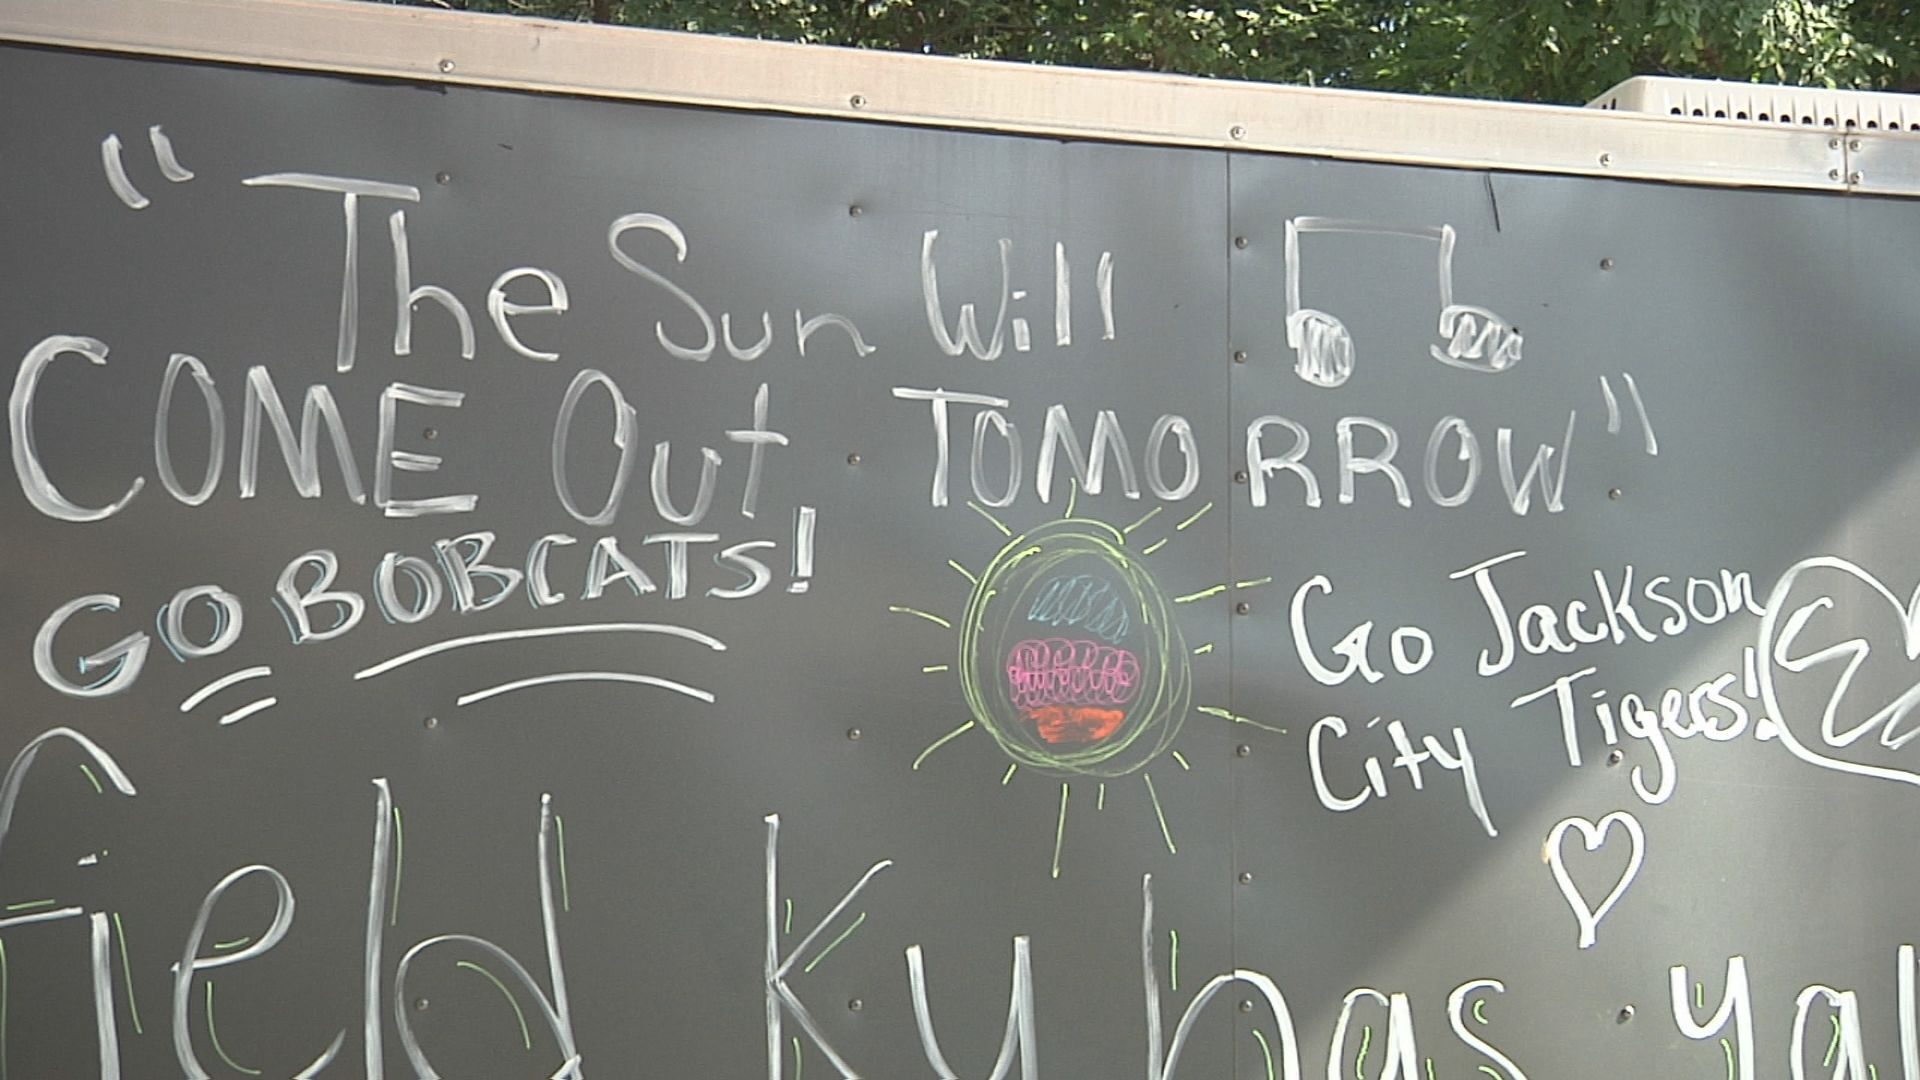 "The Sun Will
COME Out TOMORROW"
GO BOBCATS!
Go Jackson
City Tigers!
field Ky has ya